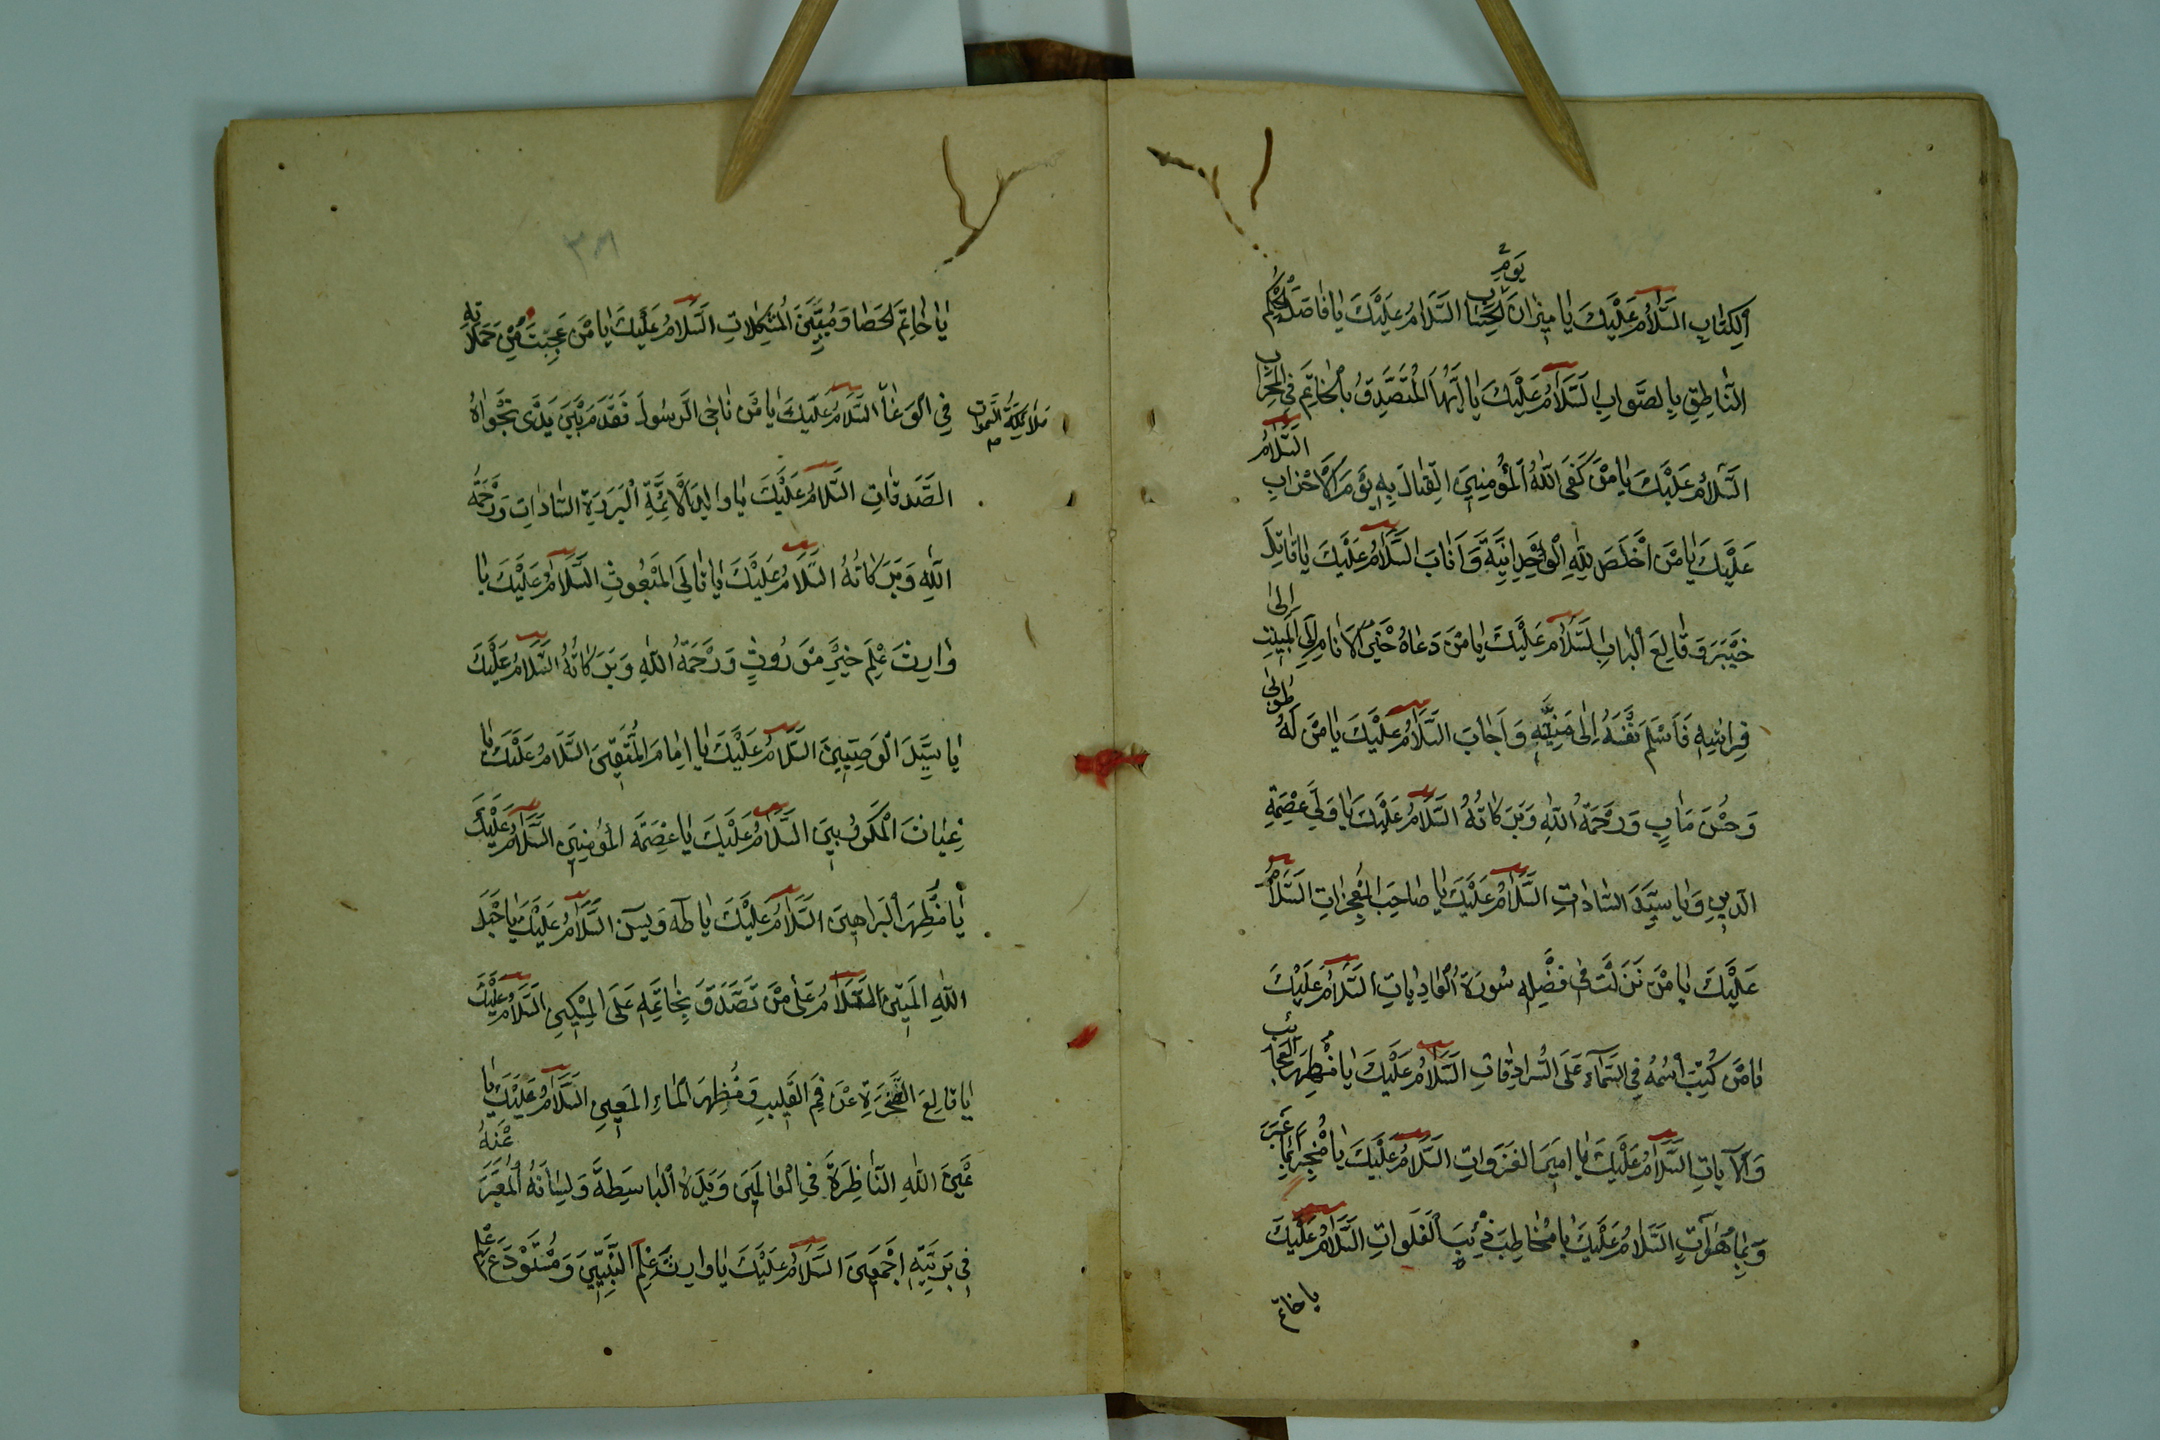 اَلْكِتٰابِ اَلسَّلٰامُ عَلَيْكَ يٰا مِيزٰانَ يَوْمِ الْحِسٰابِ اَلسَّلٰامُ عَلَيْكَ يٰا فٰاصِلَ الْحُكْمِ
النّٰاطِقِ بِالصَّوٰابِ اَلسَّلٰامُ عَلَيْكَ يٰا اَيُّهَا الْمُتَصَدِّقُ بِالْخٰاتَمِ فِى الْمِحْرٰابِ
اَلسَّلٰامُ عَلَيْكَ يٰا مَنْ كَفَى اللّٰهُ الْمُؤْمِنِينَ الْقِتٰالَ بِهِ يَوْمَ الْاَحْزٰابِ اَلسَّلٰامُ
عَلَيْكَ يٰا مَنْ اَخْلَصَ لِلّٰهِ الْوَحْدٰانِيَّةَ وَاَنٰابَ اَلسَّلٰامُ عَلَيْكَ يٰا قٰاتِلَ
خَيْبَرَ وَقٰالِعَ الْبٰابِ اَلسَّلٰامُ عَلَيْكَ يٰا مَنْ دَعٰاهُ خَيْرُ الْاَنٰامِ اِلَى الْمَبِيتِ
فِرٰاشِهِ فَاَسْلَمَ نَفْسَهُ اِلَى مَنِيَّتِهِ وَاَجٰابَ اَلسَّلٰامُ عَلَيْكَ يٰا مَنْ لَهُ طُوبٰى
وَحُسْنَ مَاٰبٍ وَرَحْمَةُ اللّٰهِ وَبَرَكٰاتُهُ اَلسَّلٰامُ عَلَيْكَ يٰا وَلِىَّ عِصْمَةِ
الدِّينِ وَيٰا سَيِّدَ السّٰادٰاتِ اَلسَّلٰامُ عَلَيْكَ يٰا صٰاحِبَ الْمُعْجِزٰاتِ اَلسَّلٰامُ
عَلَيْكَ يٰا مَنْ نَزَلَتْ فِى فَضْلِهِ سُورَةُ الْعٰادِيٰاتِ اَلسَّلٰامُ عَلَيْكَ
يٰا مَنْ كُتِبَ اسْمُهُ فِى السَّمٰآءِ عَلَى السُّرٰادِقٰاتِ اَلسَّلٰامُ عَلَيْكَ يٰا مُظْهِرَ الْعَجٰائِبِ
وَالْاٰيٰاتِ اَلسَّلٰامُ عَلَيْكَ يٰا اَمِيرَ الْغَزَوٰاتِ اَلسَّلٰامُ عَلَيْكَ يٰا مُخْبِرًا بِمٰا غَبَرَ
وَبِمٰا هُوَ اٰتٍ اَلسَّلٰامُ عَلَيْكَ يٰا مُخٰاطِبَ ذِئْبِ الْفَلَوٰاتِ اَلسَّلٰامُ عَلَيْكَ
يا خاتم
٣٨١
يٰا خٰاتِمَ الْحَصٰا وَمُبَيِّنَ الْمُشْكِلٰاتِ اَلسَّلٰامُ عَلَيْكَ يٰا مَنْ عَجِبَتْ مِنْ حَمَلٰاتِهِ
فِى الْوَغٰا اَلسَّلٰامُ عَلَيْكَ يٰا مَنْ نٰاجَى الرَّسُولَ فَقَدَّمَ بَيْنَ يَدَىْ نَجْوٰاهُ
مَلٰائِكَةُ السَّمٰوٰاتِ
الصَّدَقٰاتِ اَلسَّلٰامُ عَلَيْكَ يٰا وٰالِدَ الْاَئِمَّةِ الْبَرَرَةِ السّٰادٰاتِ وَرَحْمَةُ
اللّٰهِ وَبَرَكٰاتُهُ اَلسَّلٰامُ عَلَيْكَ يٰا تٰالِىَ الْمَبْعُوثِ اَلسَّلٰامُ عَلَيْكَ يٰا
وٰارِثَ عِلْمِ خَيْرِ مَوْرُوثٍ وَرَحْمَةُ اللّٰهِ وَبَرَكٰاتُهُ اَلسَّلٰامُ عَلَيْكَ
يٰا سَيِّدَ الْوَصِيِّينَ اَلسَّلٰامُ عَلَيْكَ يٰا اِمٰامَ الْمُتَّقِينَ اَلسَّلٰامُ عَلَيْكَ يٰا
غِيٰاثَ الْمَكْرُوبِينَ اَلسَّلٰامُ عَلَيْكَ يٰا عِصْمَةَ الْمُؤْمِنِينَ اَلسَّلٰامُ عَلَيْكَ
يٰا مُظْهِرَ الْبَرٰاهِينَ اَلسَّلٰامُ عَلَيْكَ يٰا طٰهٰ وَيٰسۤ اَلسَّلٰامُ عَلَيْكَ يٰا حَبْلَ
اللّٰهِ الْمَتِينَ اَلسَّلٰامُ عَلٰى مَنْ تَصَدَّقَ بِخٰاتَمِهِ عَلَى الْمِسْكِينِ اَلسَّلٰامُ عَلَيْكَ
يٰا قٰالِعَ الصَّخْرَةِ عَنْ فَمِ الْقَلِيبِ وَمُظْهِرَ الْمٰاءِ الْمَعِينِ اَلسَّلٰامُ عَلَيْكَ يٰا
عَيْنَ اللّٰهِ النّٰاظِرَةَ فِى الْعٰالَمِينَ وَيَدَهُ الْبٰاسِطَةَ وَلِسٰانَهُ الْمُعَبِّرَ عَنْهُ
فِى بَرِيَّتِهِ اَجْمَعِينَ اَلسَّلٰامُ عَلَيْكَ يٰا وٰارِثَ عِلْمِ النَّبِيِّينَ وَمُسْتَوْدَعَ عِلْمِ